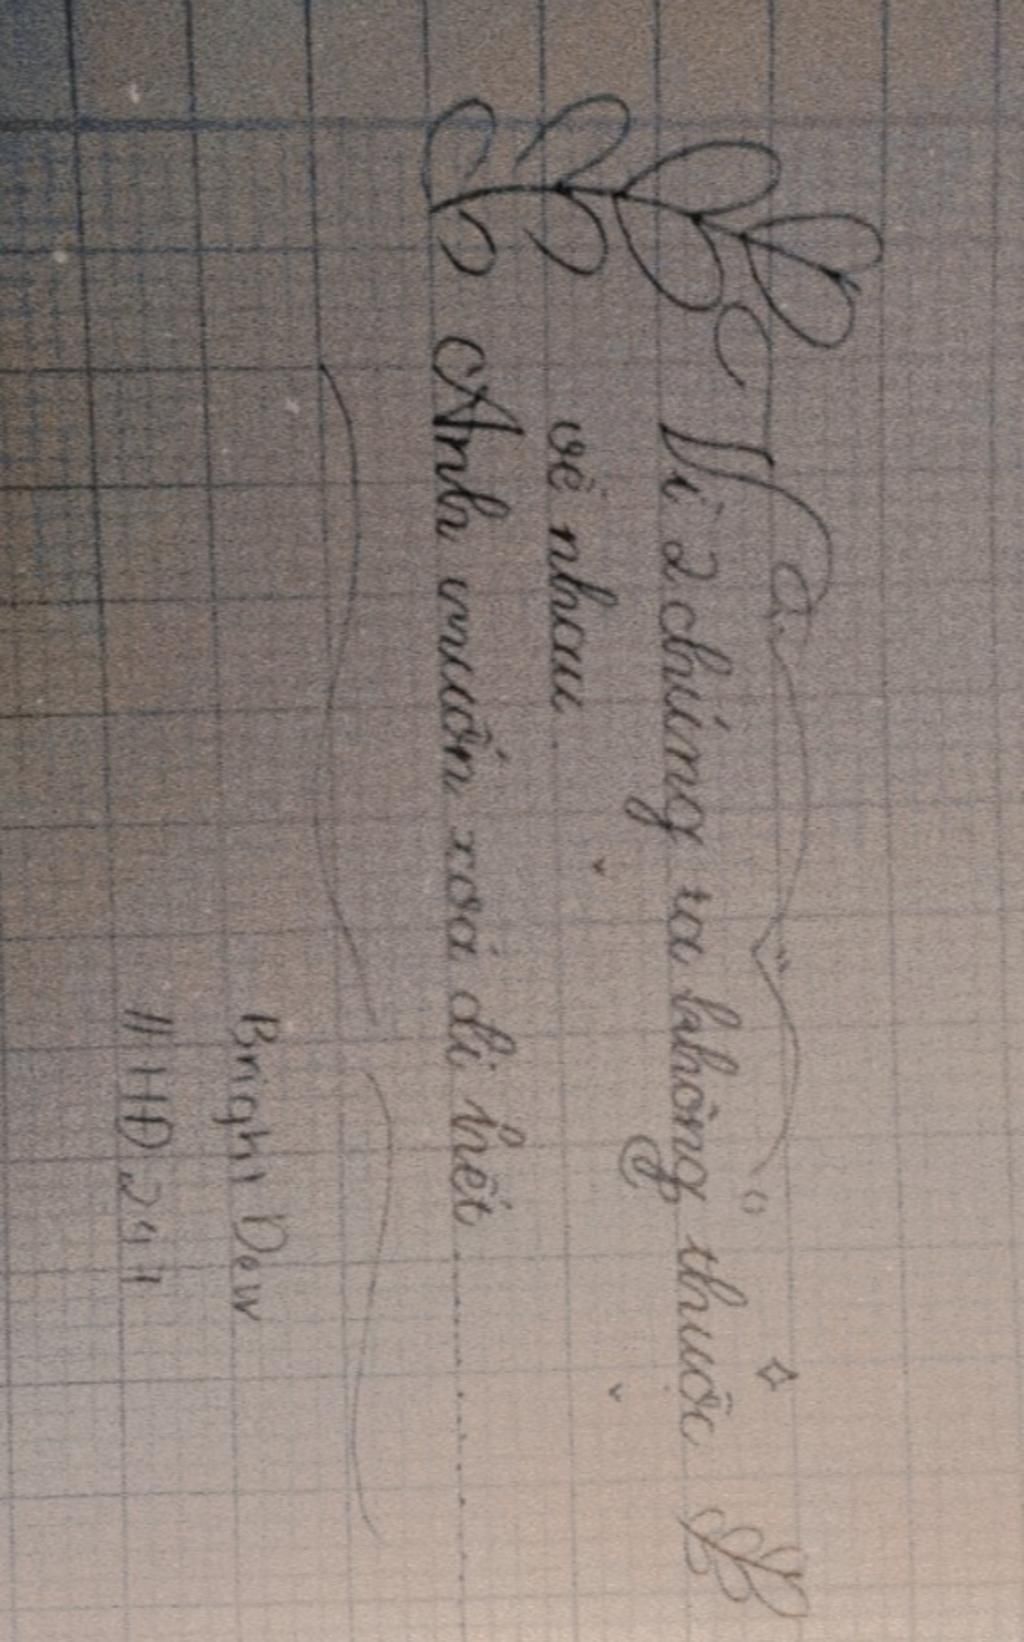 Vì 2 chúng ta không thuộc
về nhau
Anh muốn xoá đi hết........
Bright Dew
#HĐ